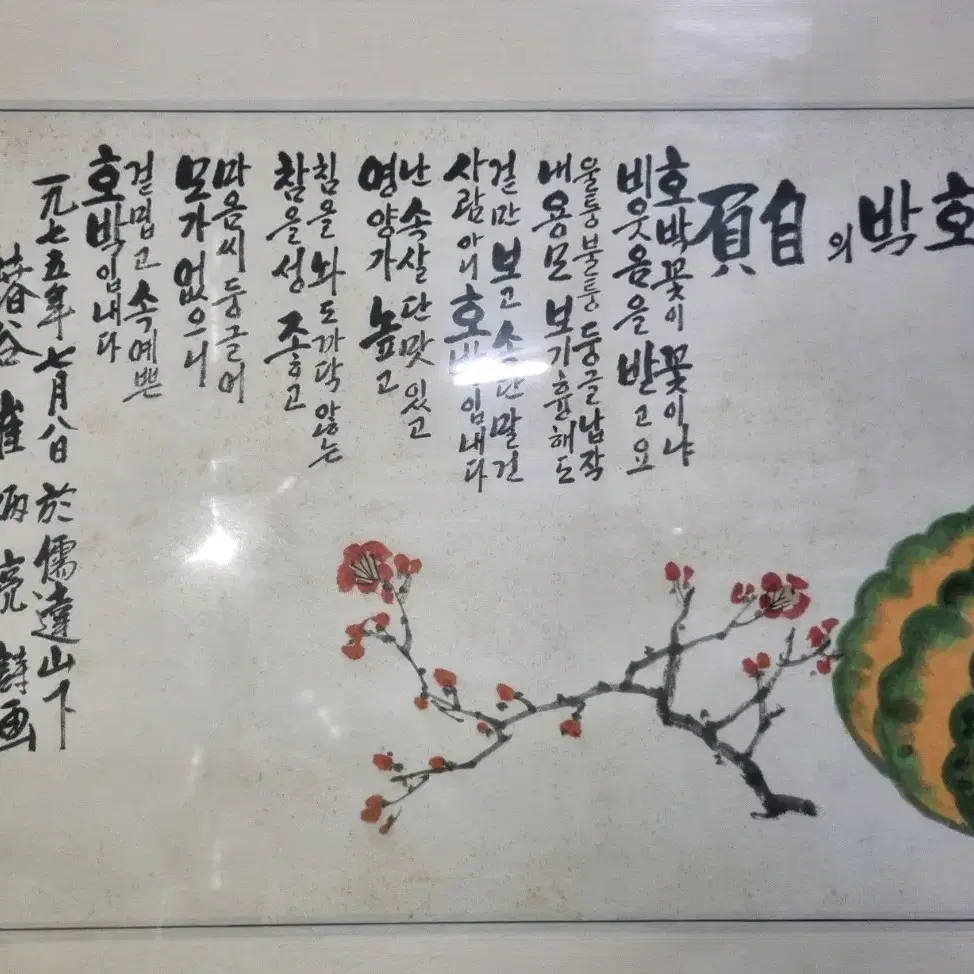 호박의 自負
호박꽃이 꽃이냐
빙웃음을 받고요
울퉁불퉁 둥글납작
내용모 보기 흉해도
걸만 보고 속단말건
사람 아니 호박임내다
난 속살 단맛 있고
영양가 높고
침을 놔도 까닥 않는
참을성 좋고
마음씨 둥글어
모가 없으니
걸밉고 속예쁜
호박임내다
一九七五年 七月八日 於儒達山下
椿谷 崔炳亮 詩画